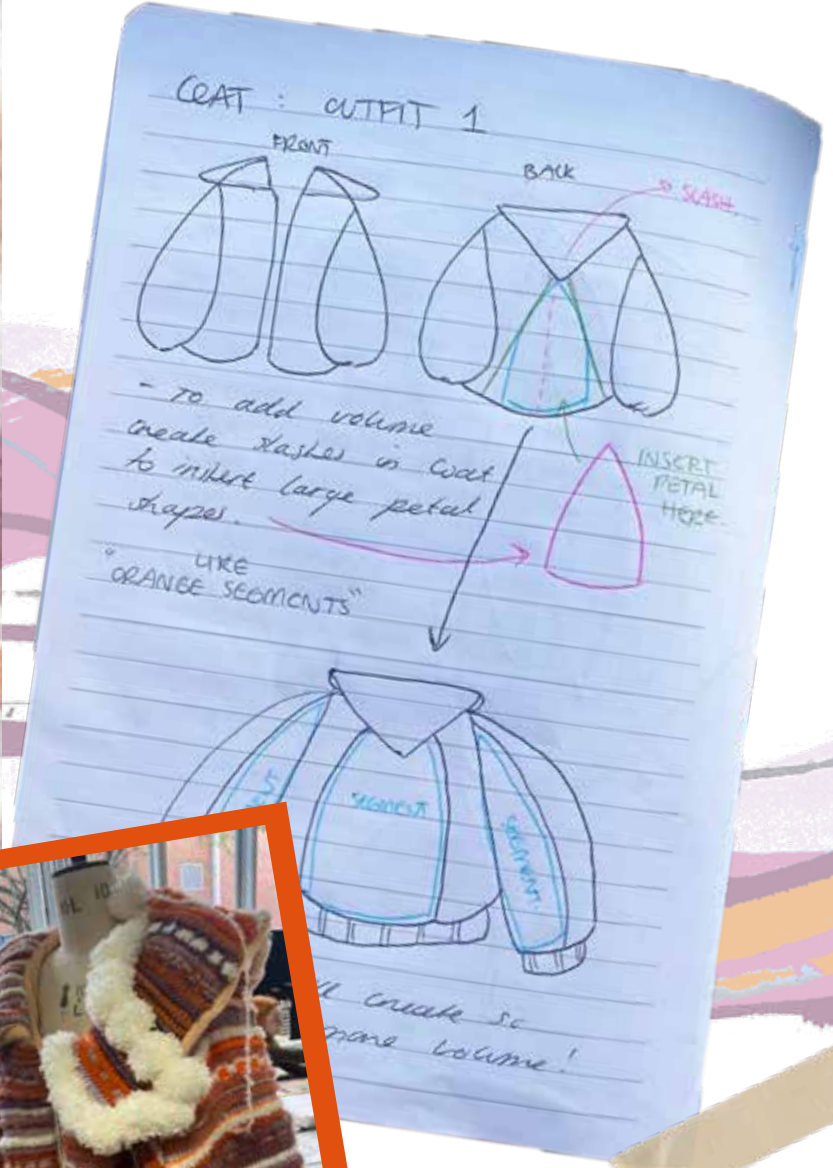 COAT : OUTFIT 1
FRONT
BACK
SLASH.
- To add volume
create slashes in coat
to insert large petal
shapes.
INSERT
PETAL
HERE.
LIKE
"ORANGE SEGMENTS"
SEGMENT
SEGMENT.
create so
more volume!